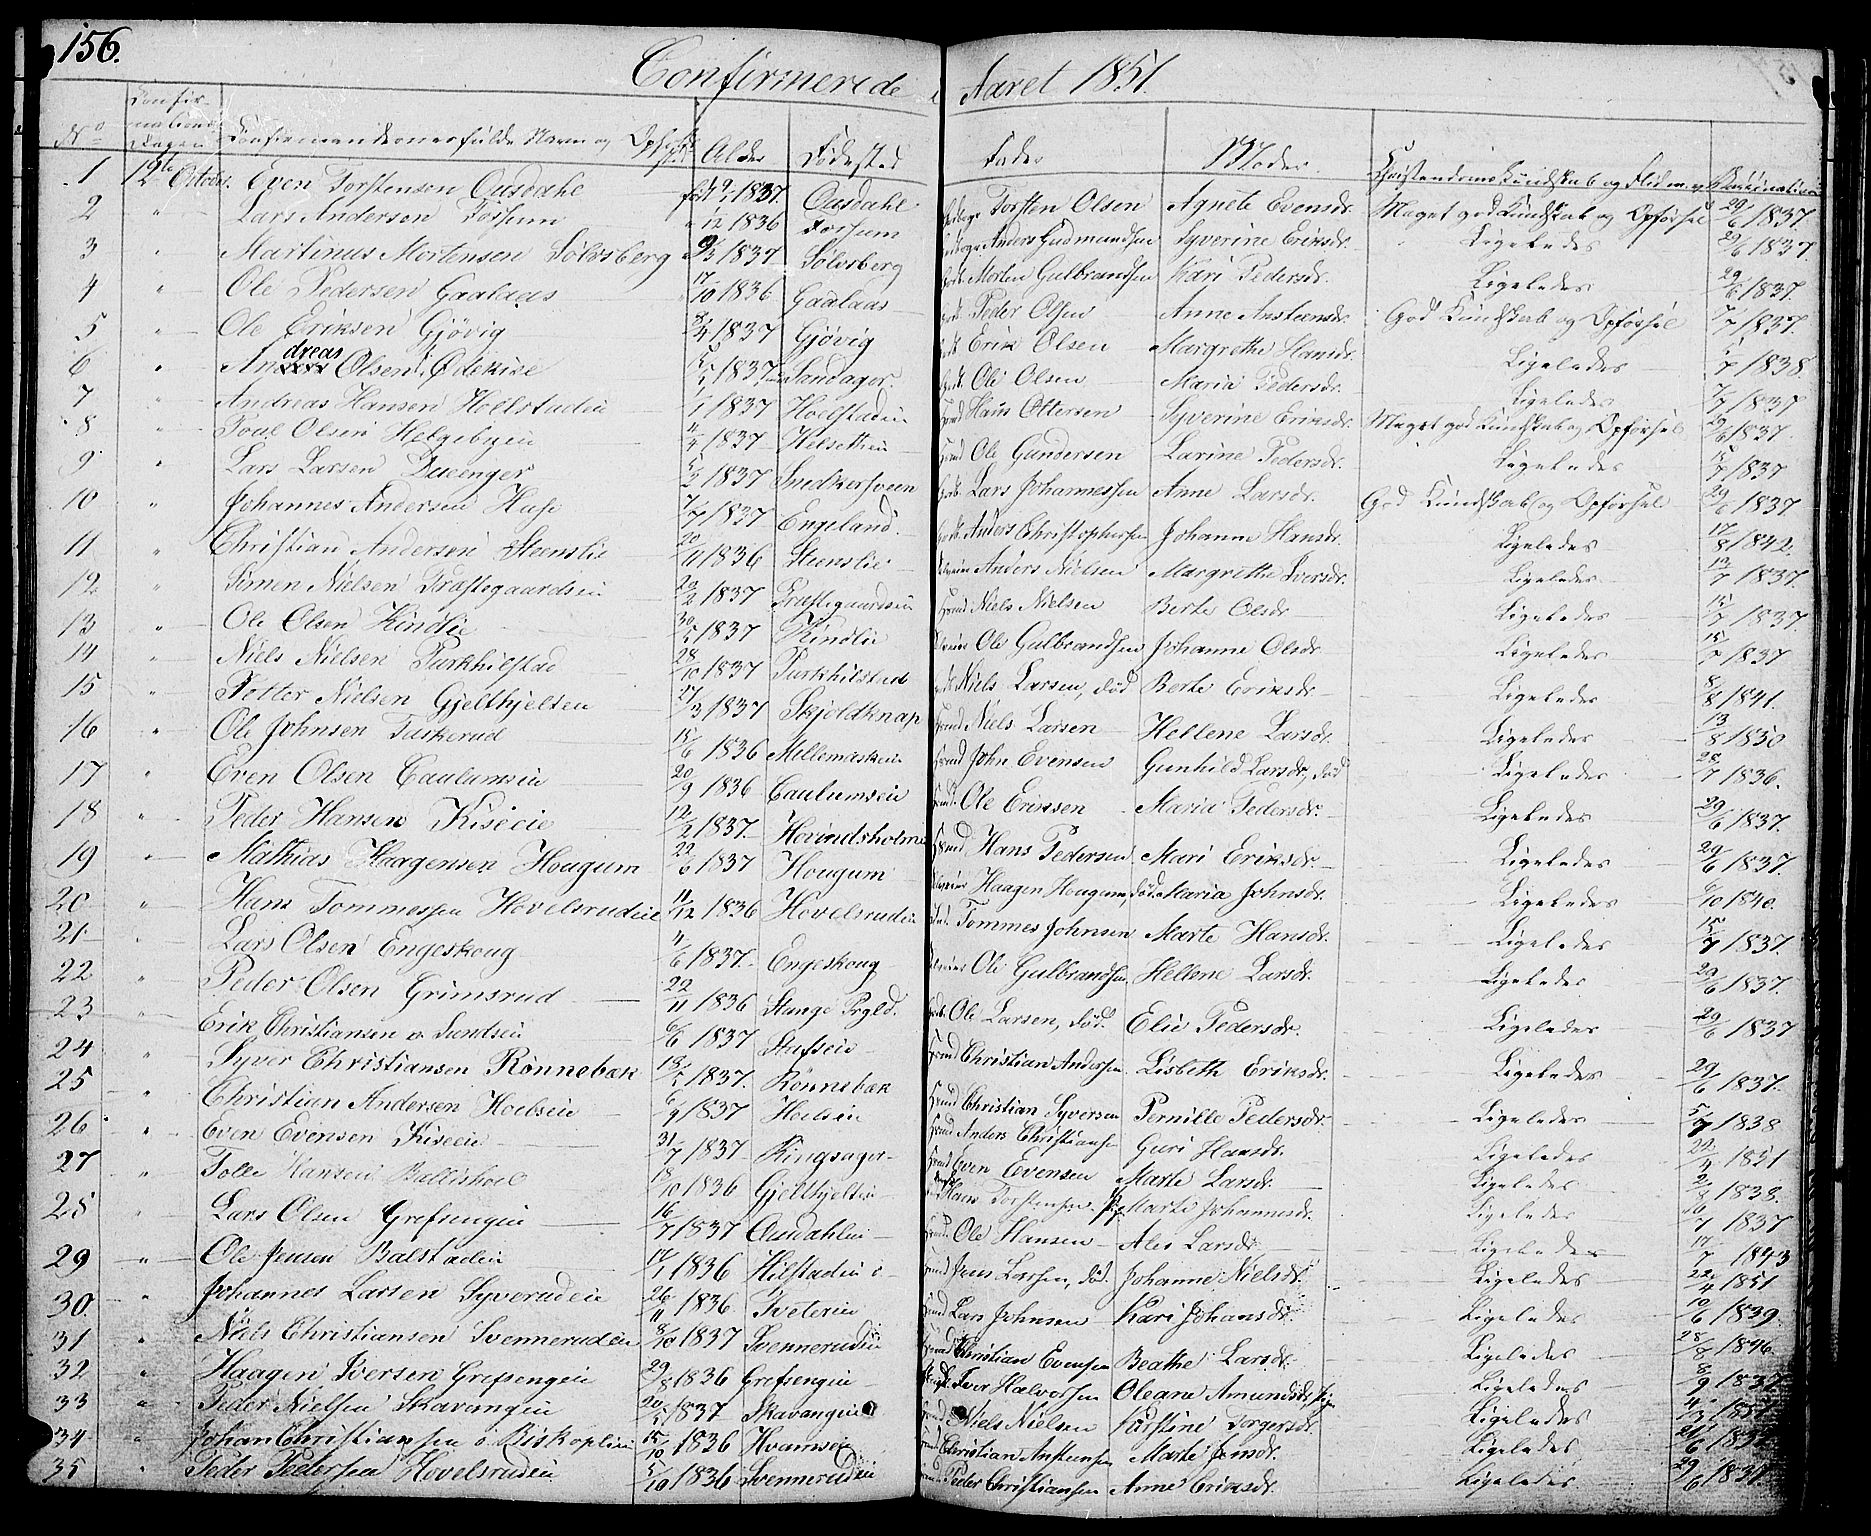 156.
Confirmerede i Aaret 1851.
No Confirmations Dagen Confirmandernes fulde Navn og Opholdssted Alder Fødested Fader Moder Christendoms Kundskab og Flid m. v. Vaccination
1 12te Octobr. Even Torstensen Ousdahl født 9/1 1837. Ousdahl Torsten Olsen Agnete Evensdr. Meget god Kundskab og Opførsel 29/6 1837.
2 " Lars Andersen Forsum /12 1836 Forsum Anders Gudmundsen Syverine Eriksdr. Ligeledes 29/6 1837.
3 " Martinus Mortensen Sølvsberg 9/3 1837 Sølvsberg Morten Gulbrandsen Kari Pedersdr. Ligeledes 29/6 1837.
4 " Ole Pedersen Gaalaas 17/10 1836 Gaalaas Peder Olsen Anne Anstensdr. God Kundskab og Opførsel 7/7 1837.
5 " Ole Eriksen Gjøvig 8/4 1837 Gjøvig Erik Olsen Margrethe Hansdr. Ligeledes /7 1838.
6 " Andreas Olsen Ødekire 5/5 1837 Sandager. Ole Olsen Maria Pedersdr. Ligeledes 7/7 1837
7 " Andreas Hansen Hollstadeie 1837 Hoelstadeie Hans Ottersen Syverine Eriksdr. Meget god Kundskab og Opførsel 29/6 1837.
8 " Poul Olsen Helgebyeie 4/4 1837 Helsetheie Ole Gundersen Larine Pedersdr. Ligeledes 15/7 1837
9 " Lars Larsen Duenger 5/2 1837 Snedkersveen Lars Johannessen Anne Larsdr. God Kundskab og Opførsel 29/6 1837
10 " Johannes Andersen Huse 7/7 1837 Engeland. Anders Christophersen Johanne Hansdr. Ligeledes 17/8 1842.
11 " Christian Andersen Steenslie 20/11 1836 Steenslie Anders Nielsen Margrethe Iversdr. Ligeledes 13/7 1837.
12 " Simen Nielsen Præstegaardseie 20/2 1837 Præstegaardseie Niels Nielsen Berte Olsdr Ligeledes 15/7 1837.
13 " Ole Olsen Kindlie 30/5 1837 Kindlie Ole Gulbrandsen Johanne Olsdr Ligeledes 15/7 1837
14 " Niels Nielsen Turkhilstad 28/10 1837 Turkhilstad Niels Larsen, død Berte Eriksdr. Ligeledes 8/8 1841.
15 " Petter Nielsen Gjelthjelten 27/3 1837 Skjoldknap Niels Larsen Hellene Larsdr. Ligeledes 13/8 1850
16 " Ole Johnsen Tuskerud 15/6 1836 Millemaskeie John Evensen Gunhild Larsdr, død Ligeledes 28/7 1836.
17 " Even Olsen Caulumseie 20/9 1836 Caulumseie Ole Eriksen Maria Pedersdr. Ligeledes 29/6 1837.
18 " Peder Hansen Kiseeie 12/2 1837. Hovindsholm Hans Pedersen Mari Eriksdr. Ligeledes 29/6 1837.
19 " Mathias Haagensen Hougum 22/6 1837 Hougum Haagen Hougum død. Maria Johnsdr. Ligeledes 6/10 1840.
20 " Hans Tommessen Hovelsrudeie 11/12 1836 Hovelsrudeie Tommes Johnsen Marte Hansdr. Ligeledes 15/7 1837.
21 " Lars Olsen Engeskoug 4/6 1837. Engeskoug Ole Gulbrandsen Hellene Larsdr. Ligeledes 29/6 1837.
22 " Peder Olsen Grimsrud 22/11 1836 Stange Prgld. Ole Larsen, død. Elie Pedersdr. Ligeledes 29/6 1837
23 " Erik Christiansen Sundseie 6/6 1837 Stafseie Christian Andersen Lisbeth Eriksdr. Ligeledes 29/6 1837.
24 " Syver Christiansen Rønnebæk 13/5 1837. Rønnebæk Christian Syversen Pernille Pedersdr. Ligeledes 5/7 1838
25 " Christian Andersen Hoelseie 6/9 1837 Hoelseie Anders Christiansen Guri Hansdr. Ligeledes 22/4 1851
26 " Even Evensen Kiseeie 31/7 1837 Ringsager Even Evensen Marte Larsdr. Ligeledes 2/8 1838.
27 " Tolle Hansen Ballishoel 18/10 1836 Gjelthjelten Hans Torstensen Marte Johannesdr. Ligeledes /7 1837
28 " Lars Olsen Grefsengeie 16/7 1837 Ousdahleie Ole Hansen Alis Larsdr. Ligeledes 17/7 1843
29 " Ole Jensen Balstadeie 17/1 1836 Hilstadeie Jens Larsen, død. Johanne Nielsdr. Ligeledes 22/4 1851
30. " Johannes Larsen Syverudeie 26/11 1836 Tveteie Lars Johnsen Kari Johansdr. Ligeledes 10/6 1839.
31 " Niels Christiansen Svennerudeie 8/10 1837 Svennerudeie Christian Evensen Beathe Larsdr. Ligeledes 28/8 1846
32 " Haagen Iversen Grefsengeie 29/8 1836 Grefsengeie Iver Halvorsen Oleane Amundsdr. Ligeledes 8/9 1837
33 " Peder Nielsen Skavangeie 20/5 1837 Skavangeie Niels Nielsen Kirstine Torgersdr. Ligeledes
34 " Johan Christiansen Biskopleie 15/10 1836 Hvamseie Christian Anstensen Marte Jensdr. Ligeledes
35 " Peder Pedersen Hovelsrudeie 5/10 1836 Svennerudeie Peder Christiansen Anne Eriksdr. Ligeledes 29/6 1837.